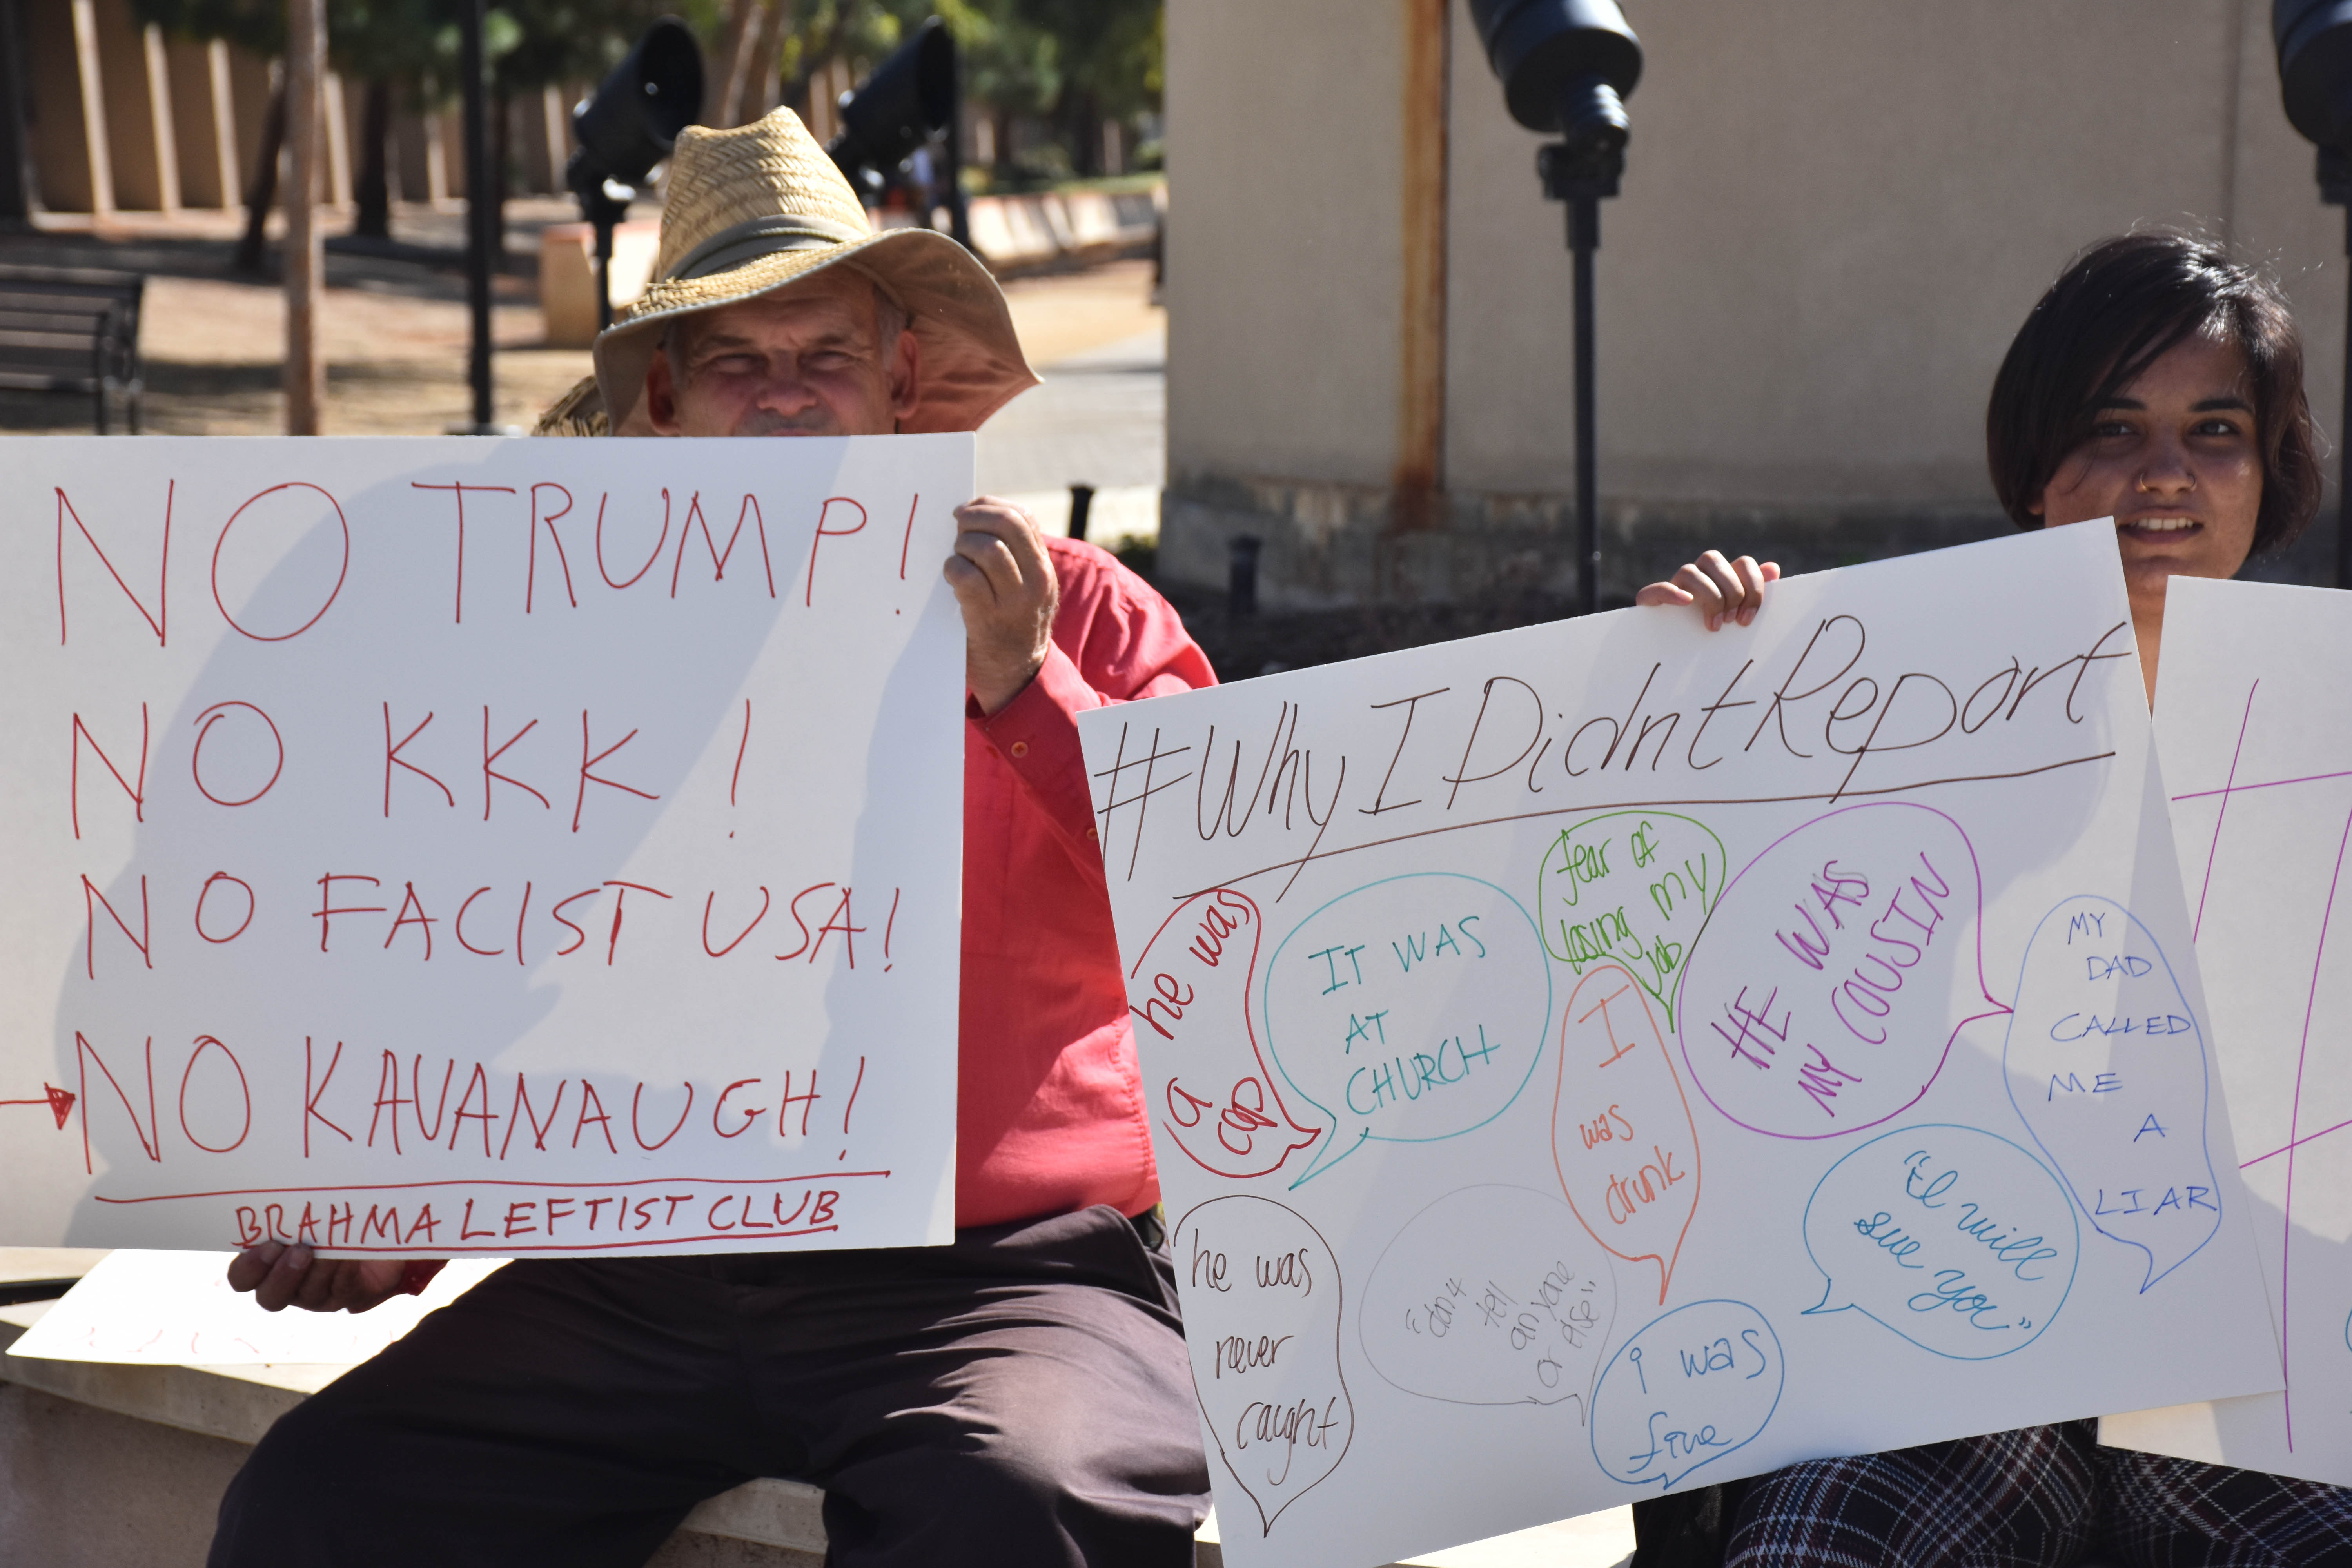 NO TRUMP!
NO KKK!
NO FACIST USA!
NO KAVANAUGH!
BRAHMA LEFTIST CLUB
#WhyIDidntReport
he was
a
cop
IT WAS
AT
CHURCH
fear of
losing my
job
I
was
drunk
HE WAS
MY COUSIN
MY
DAD
CALLED
ME
A
LIAR
he was
never
caught
"don't
tell
anyone
or else"
i was
five
"I will
sue you"